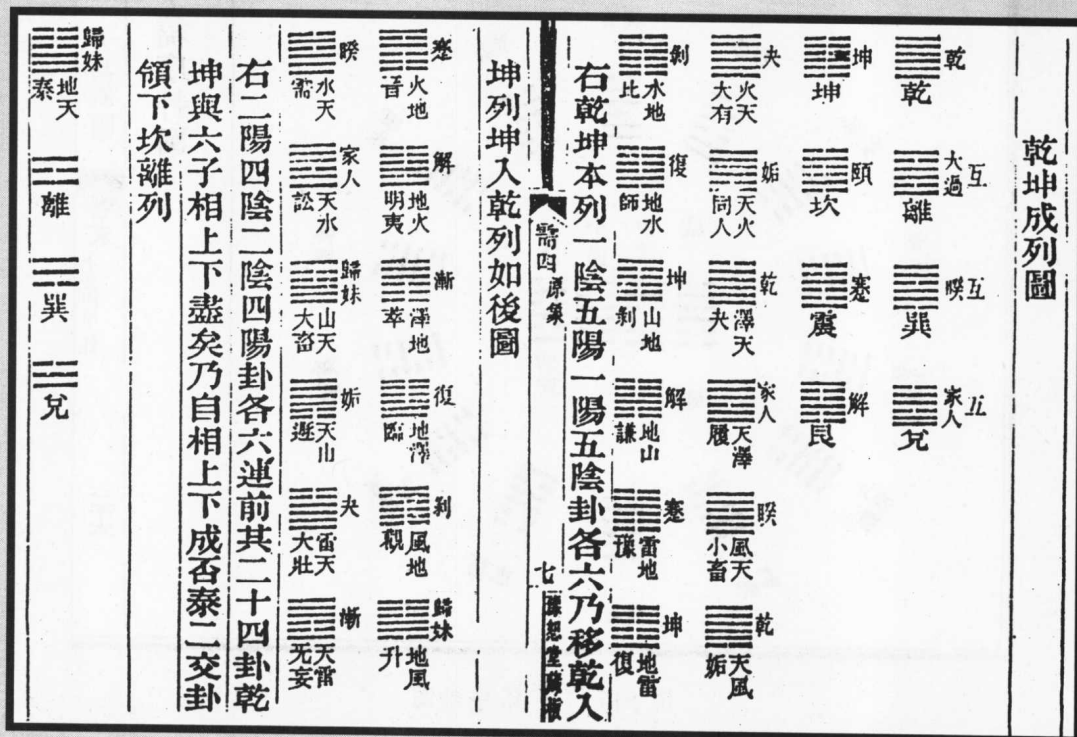 乾坤成列圖
乾 乾 互 大過 離 互 睽 巽 互 家人 兌
坤 坤 頤 坎 蹇 震 解 艮
夬 火天 大有 姤 天火 同人 乾 澤天 夬 家人 天澤 履 睽 風天 小畜 乾 天風 姤
剝 水地 比 復 地水 師 坤 山地 剝 解 地山 謙 蹇 雷地 豫 坤 地雷 復
右乾坤本列一陰五陽一陽五陰卦各六乃移乾入
四 七
坤列坤入乾列如後圖
蹇 火地 晉 解 地火 明夷 漸 澤地 萃 復 地澤 臨 剝 風地 觀 歸妹 地風 升
睽 水天 需 家人 天水 訟 歸妹 山天 大畜 姤 天山 遯 夬 雷天 大壯 漸 天雷 无妄
右二陽四陰二陰四陽卦各六連前其二十四卦乾
坤與六子相上下盡矣乃自相上下成否泰二交卦
領下坎離列
歸妹 地天 泰 離 巽 兌